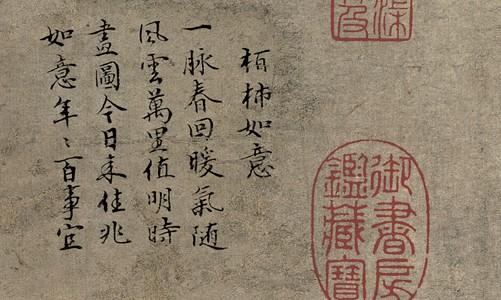 御書房
鑑藏寶
栢柿如意
一脉春回暖氣随
風雲萬里值明時
畫圖今日来佳兆
如意年〻百事宜